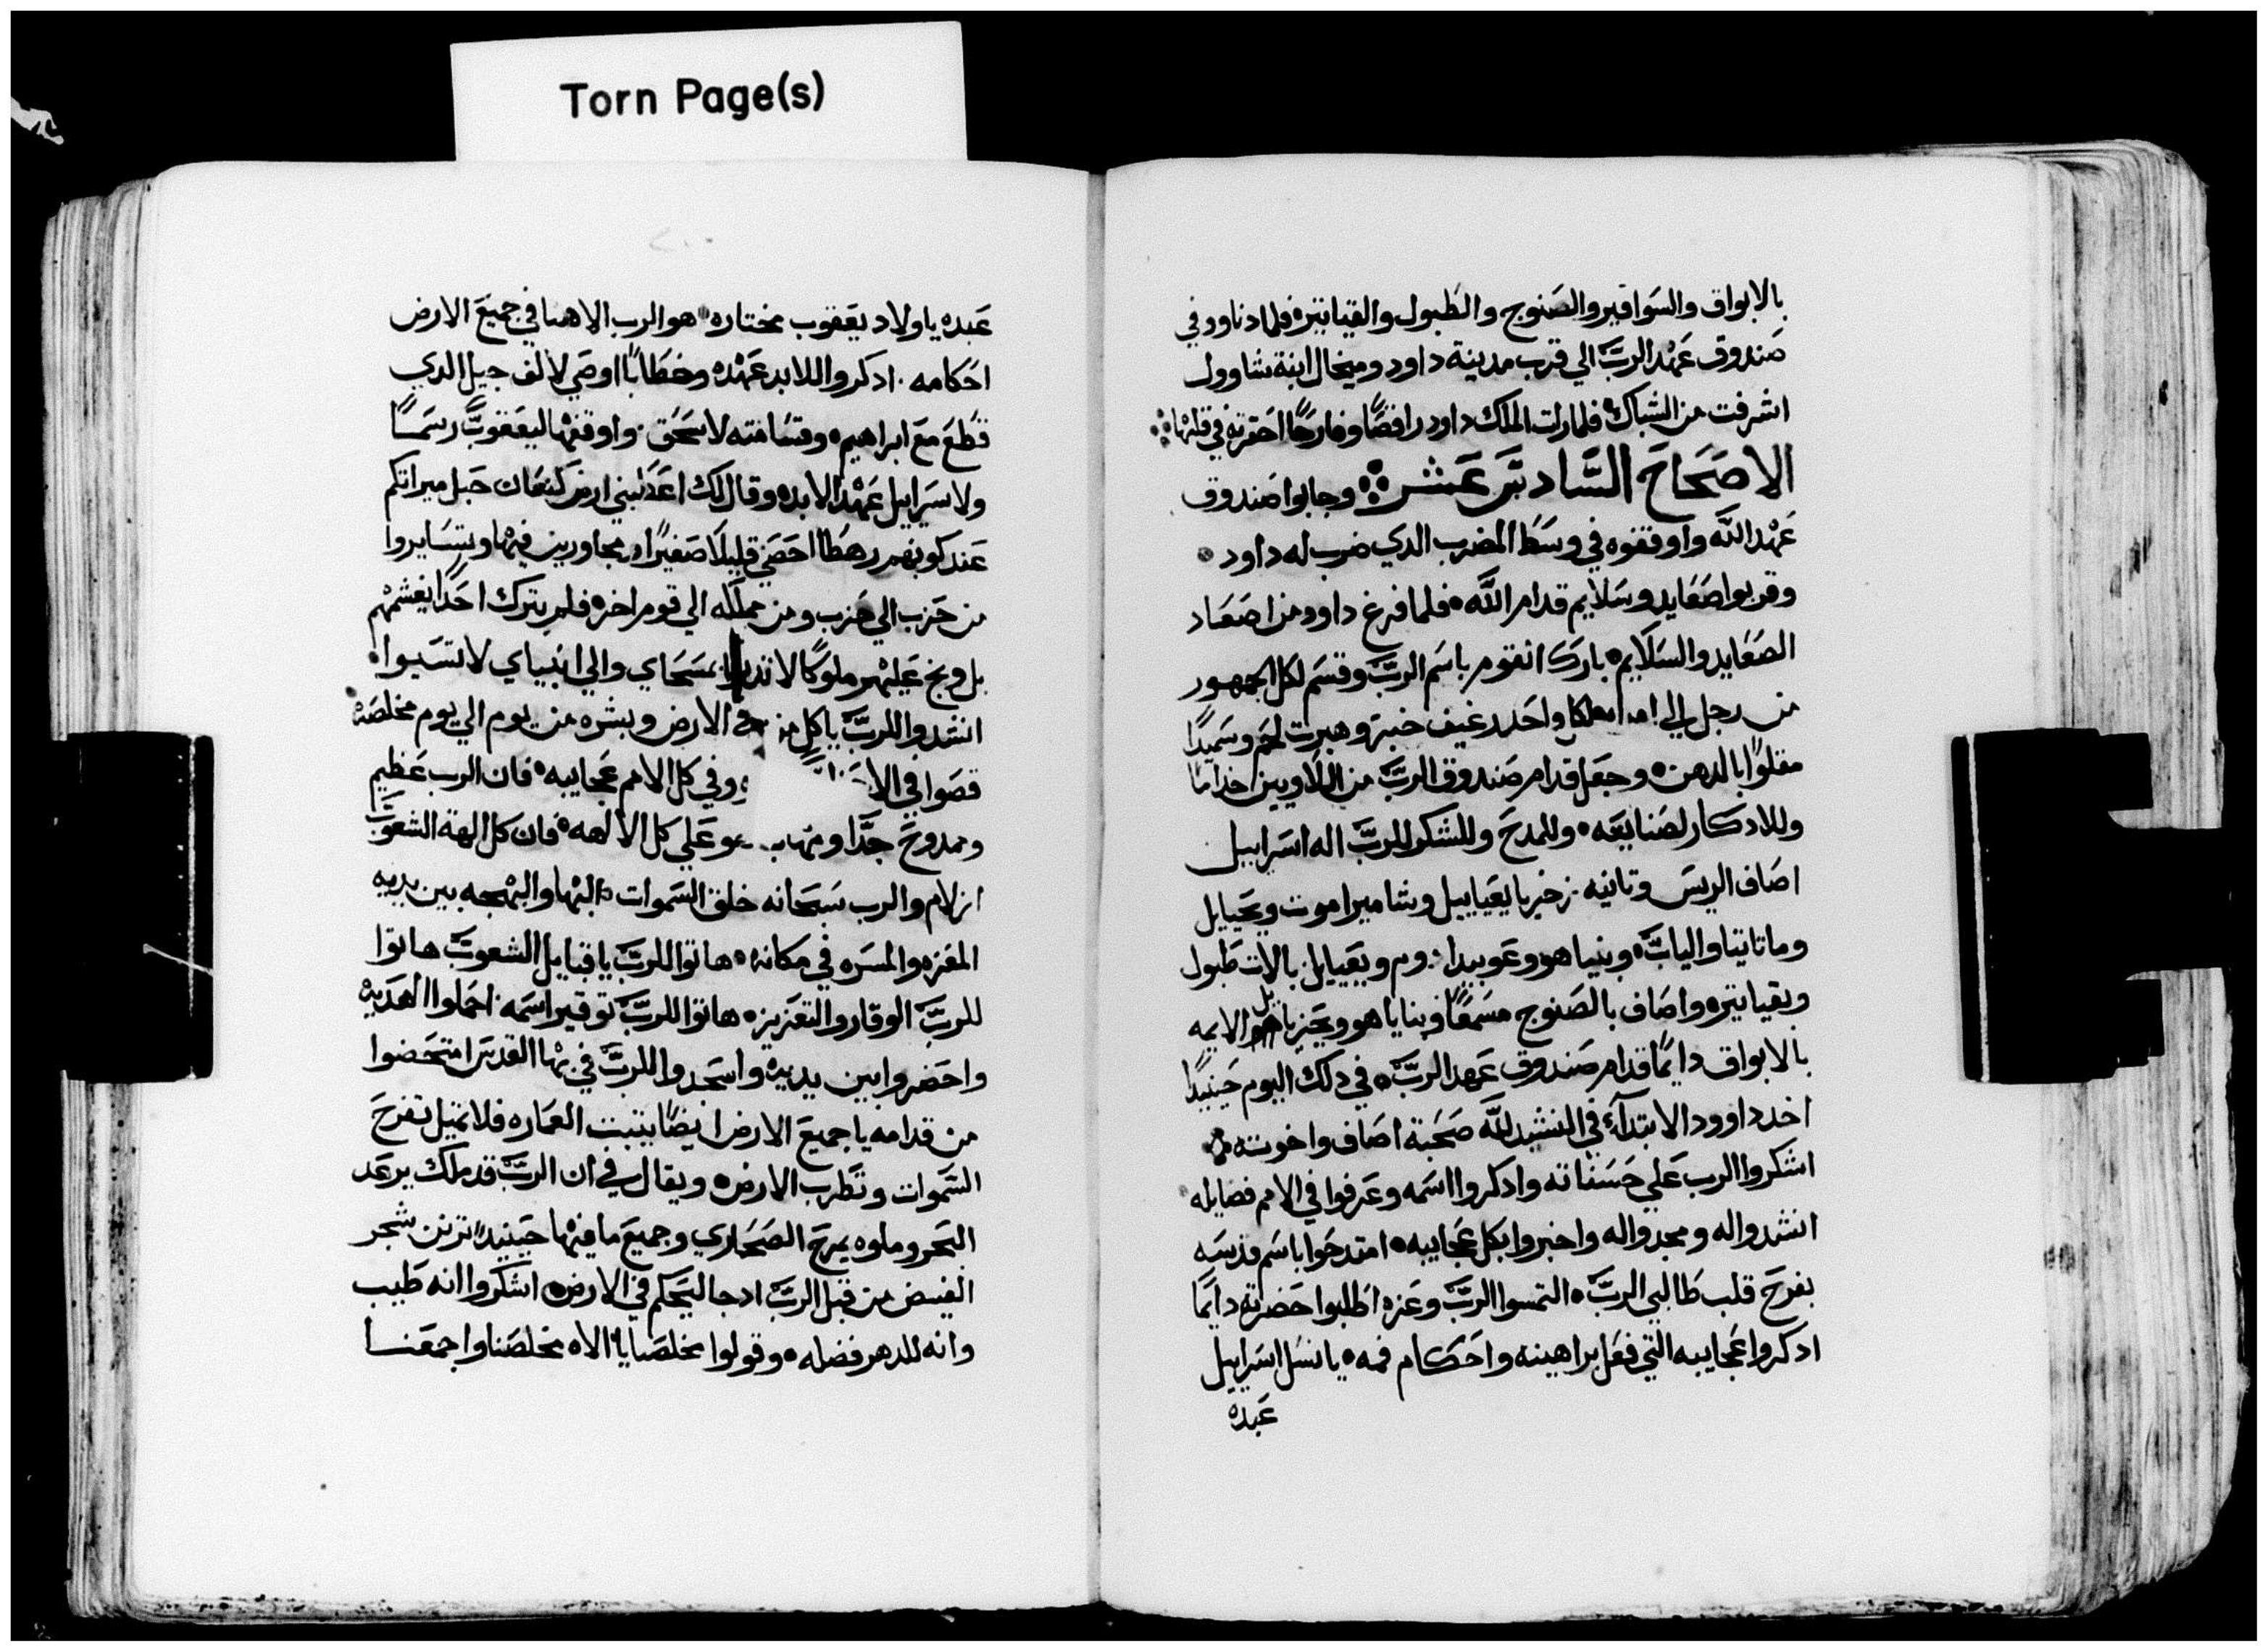 Torn Page(s)
بالابواق والسواقير والصنوج والطبول والقياتير فلما دنا ورد في
صندوق عهد الرب الي قرب مدينة داود وميخال ابنة شاوول
اشرفت من الشباك فلما رات الملك داود رافضًا وفارحًا احقرته في قلبها
الاصحاح السادس عشر وجابوا صندوق
عهد الله واوقفوه في وسط المضرب الدي ضرب له داود
وقربوا صعايد وسلايم قدام الله فلما فرغ داوود من اصعاد
الصعايد والسلايم بارك القوم باسم الرب وقسم لكل الجمهور
من رجل الي واحد رغيف خبز وهبرت لحم وسميدًا
مقلوًا بالدهن وجعل قدام صندوق الرب من اللاويين خدامًا
وللادكار لصنايعه وللمدح وللشكر للرب اله اسراييل
اصاف الريس وتانيه زخريا يعياييل وشاميراموت ويحيايل
وماتاتيا والياب وبنياهو وعوبيد ويعييايل بالات طبول
وبقياتيره واصاف بالصنوج مسمعًا وبناياهو ويحزيايل الايمه
بالابواق دايمًا قدام صندوق عهد الرب في دلك اليوم حينيدًا
اخد داوود الابتدآء في النشيد لله صحبة اصاف واخوته
اشكروا الرب علي حسناته وادكروا اسمه وعرفوا في الامم فضايله
انشدوا له ومجدوا له واخبروا بكل عجايبه امتدحوا باسم قدسه
بفرح قلب طالبي الرب التمسوا الرب وعزه اطلبوا حضرته دايمًا
ادكروا عجايبه التي فعل براهينه واحكام فمه يا نسل اسراييل
عبده
عبده يا ولاد يعقوب مختاره هو الرب الاهنا في جميع الارض
احكامه ادكروا للابد عهده وخطابًا اوصي لالف جيل الدي
قطع مع ابراهيم وقسامته لاسحق واوقفها ليعقوب رسمًا
ولاسراييل عهد الابد وقال لك اعطيني ارض كنعان حبل ميراتكم
عند كونهم رهطا احضي قليلًا صغيرًا ومجاورين فيها وتسايروا
من حزب الي حزب ومن مملكه الي قوم اخر فلم يترك احدًا يغشمهم
بل وبخ عليهم ملوكًا لا بمسحاي والي انبياي لا تسيوا
انشدوا للرب يا كل من في الارض وبشره من يوم الي يوم مخلصه
قصوا في وفي كل الامم عجايبه فان الرب عظيم
وممدوح جدًا علي كل الالهه فان كل الهة الشعوب
ازلام والرب سبحانه خلق السموات البها والبهجه بين يديه
المعزه والمسره في مكانه هاتوا للرب يا قبايل الشعوب هاتوا
للرب الوقار والتعزيز هاتوا للرب توقير اسمه احملوا الهديه
واحضروا بين يديه واسجدوا للرب في بها القدس امتحضوا
من قدامه يا جميع الارض ايضًا بتبت العماره فلا تميل تفرح
السموات وتطرب الارض ويقال في ان الرب قد ملك يرعد
البحر وملوه يمرح الصحاري وجميع ما فيها حينيدًا ترنن شجر
الغيض من قبل الرب اد جا ليحكم في الارض اشكروا انه طيب
وانه للدهر فضله وقولوا خلصنا يا الاه مخلصنا واجمعنا